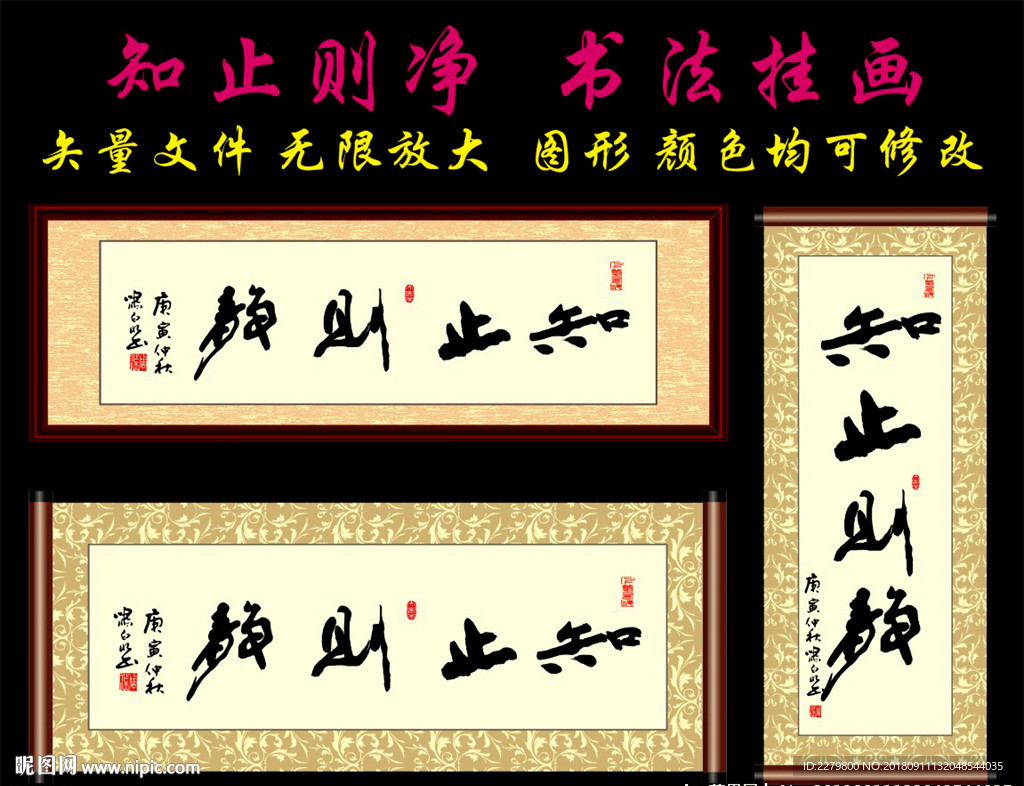 知止则净 书法挂画
矢量文件 无限放大 图形 颜色均可修改
知止则静
庚寅仲秋
知止则静
庚寅仲秋
知止则静
庚寅仲秋
昵图网 www.nipic.com
ID:2279800 NO:20180911132048544035